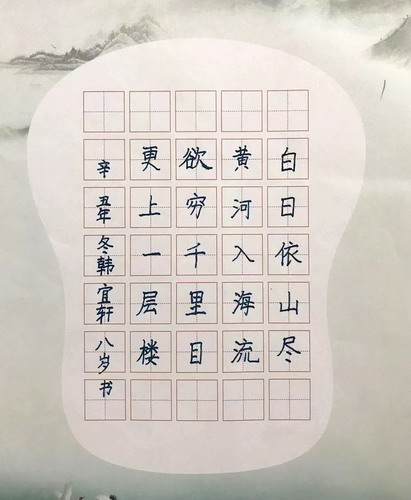 白日依山尽
黄河入海流
欲穷千里目
更上一层楼
辛丑年冬韩宜轩八岁书